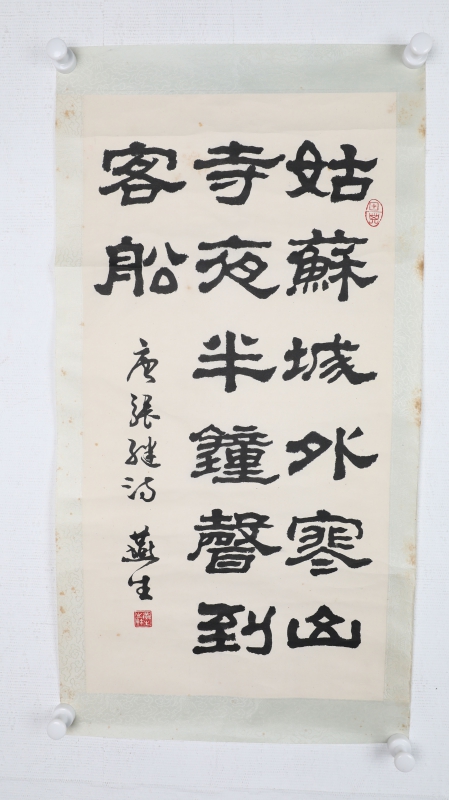 姑蘇城外寒山
寺夜半鐘聲到
客船
唐張繼詩 燕生